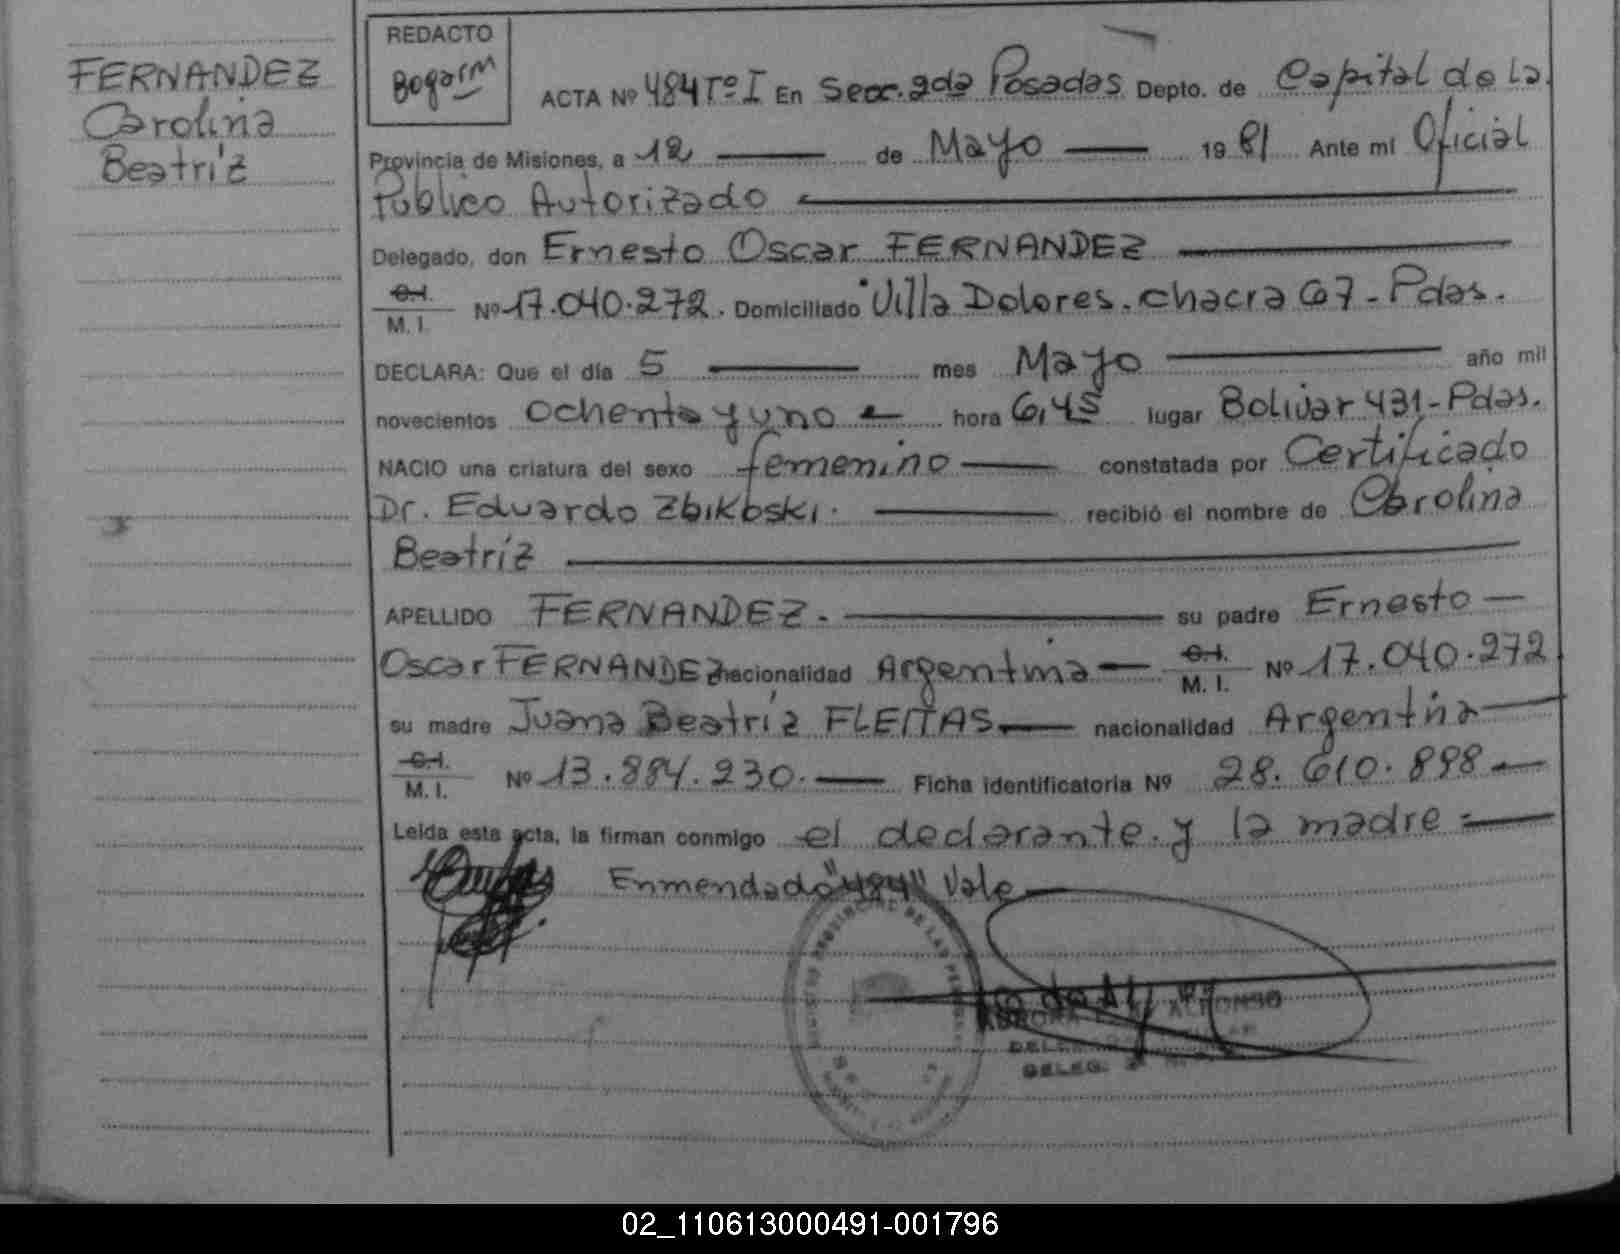 FERNANDEZ
Carolina
Beatríz
REDACTO
Bogarin
ACTA Nº 484 Tº I En Secc. 2da Posadas Depto. de Capital de la
Provincia de Misiones, a 12 de Mayo 1981 Ante mi Oficial
Público Autorizado
Delegado, don Ernesto Oscar FERNANDEZ
C.I.
M. I. Nº 17.040.272. Domiciliado Villa Dolores. chacra 67 - Pdas.
DECLARA: Que el día 5 mes Mayo año mil
novecientos ochenta y uno hora 6,45 lugar Bolivar 431 - Pdas.
NACIO una criatura del sexo femenino constatada por Certificado
Dr. Eduardo Zbikoski. recibió el nombre de Carolina
Beatríz
APELLIDO FERNANDEZ. su padre Ernesto
Oscar FERNANDEZ nacionalidad Argentina C.I. M. I. Nº 17.040.272
su madre Juana Beatríz FLEITAS nacionalidad Argentina
C.I.
M. I. Nº 13.884.230. Ficha identificatoria Nº 28.610.898
Leída esta acta, la firman conmigo el declarante. y la madre
Enmendado "484" Vale
ALFONSO
DELEG.
02_110613000491-001796